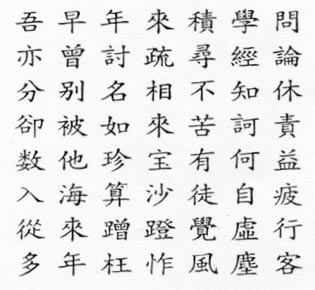 吾早年來積學問
亦曾討疏尋經論
分别名相不知休
卻被如來苦訶責
数他珍宝有何益
入海算沙徒自疲
從來蹭蹬覺虛行
多年枉怍風塵客